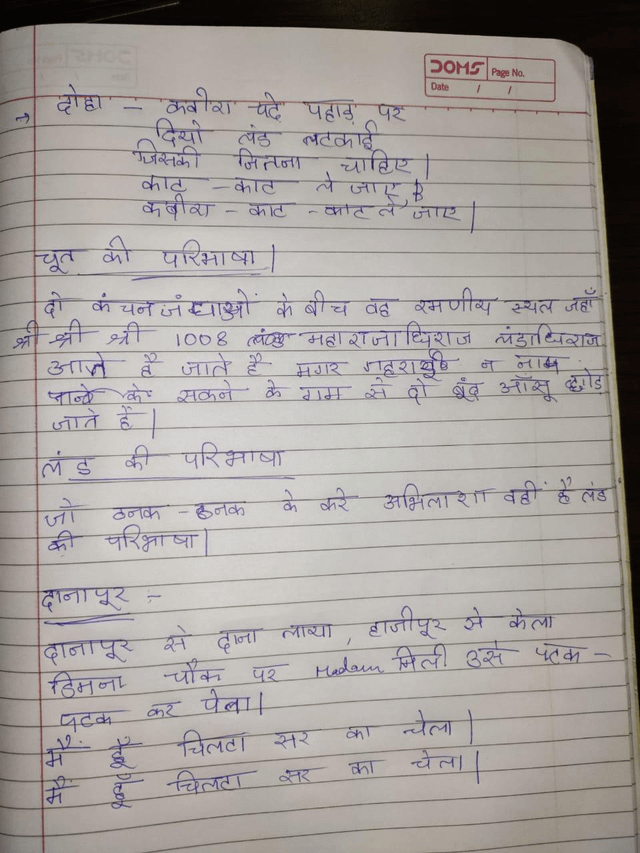 DOMS
Page No.
Date / /
→ दोहा — कबीरा चढ़े पहाड़ पर
दियो लंड लटकाई
जिसकी जितना चाहिए |
काट - काट ले जाए
कबीरा - काट - काट ले जाए |
चूत की परिभाषा |
दो कंचन जंघाओं के बीच वह रमणीय स्थल जहाँ
श्री श्री श्री 1008 महाराजाधिराज लंडाधिराज
आते है जाते है मगर गहराई न
के सकने के गम से दो बूंद आँसू छोड़
जाते हैं |
लंड की परिभाषा
जो ठनक - ठनक के करे अभिलाशा वही है लंड
की परिभाषा |
दानापूर :-
दानापूर से दाना लाया , हाजीपूर से केला
डिमना चौक पर Madam मिली उसे पटक -
पटक कर पेला |
मैं हूँ चिलटा सर का चेला |
मैं हूँ चिलटा सर का चेला |